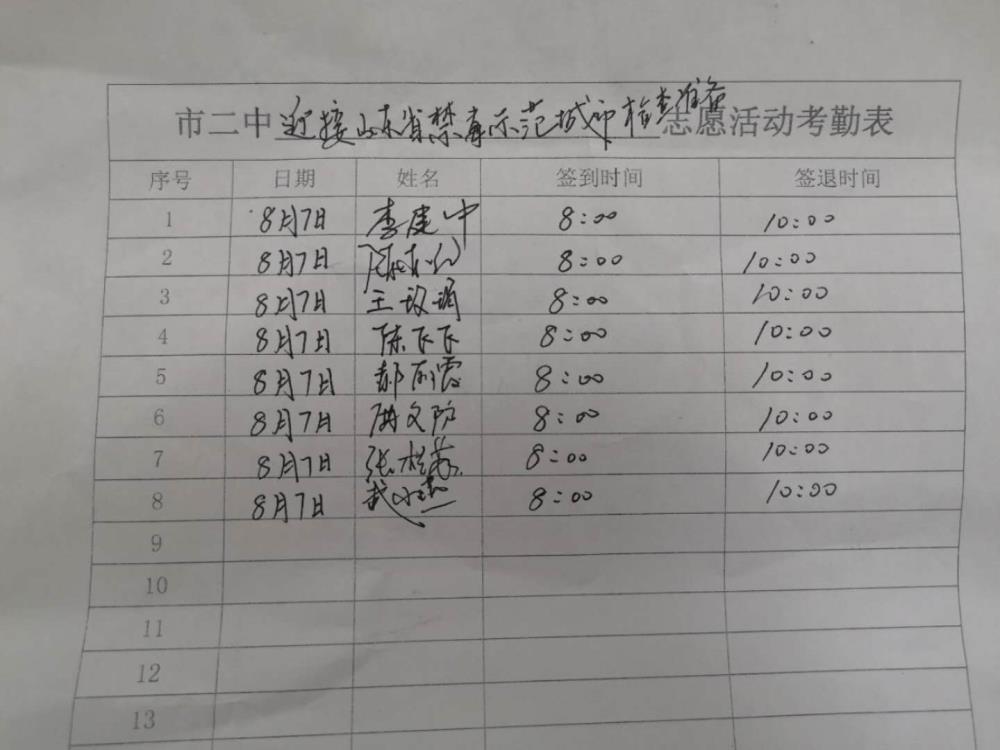 市二中迎接山东省禁毒示范城市检查准备志愿活动考勤表
序号 日期 姓名 签到时间 签退时间
1 8月7日 李建中 8:00 10:00
2 8月7日 8:00 10:00
3 8月7日 王玫涌 8:00 10:00
4 8月7日 陈飞飞 8:00 10:00
5 8月7日 郝丽霞 8:00 10:00
6 8月7日 文 8:00 10:00
7 8月7日 张 8:00 10:00
8 8月7日 武 8:00 10:00
9
10
11
12
13